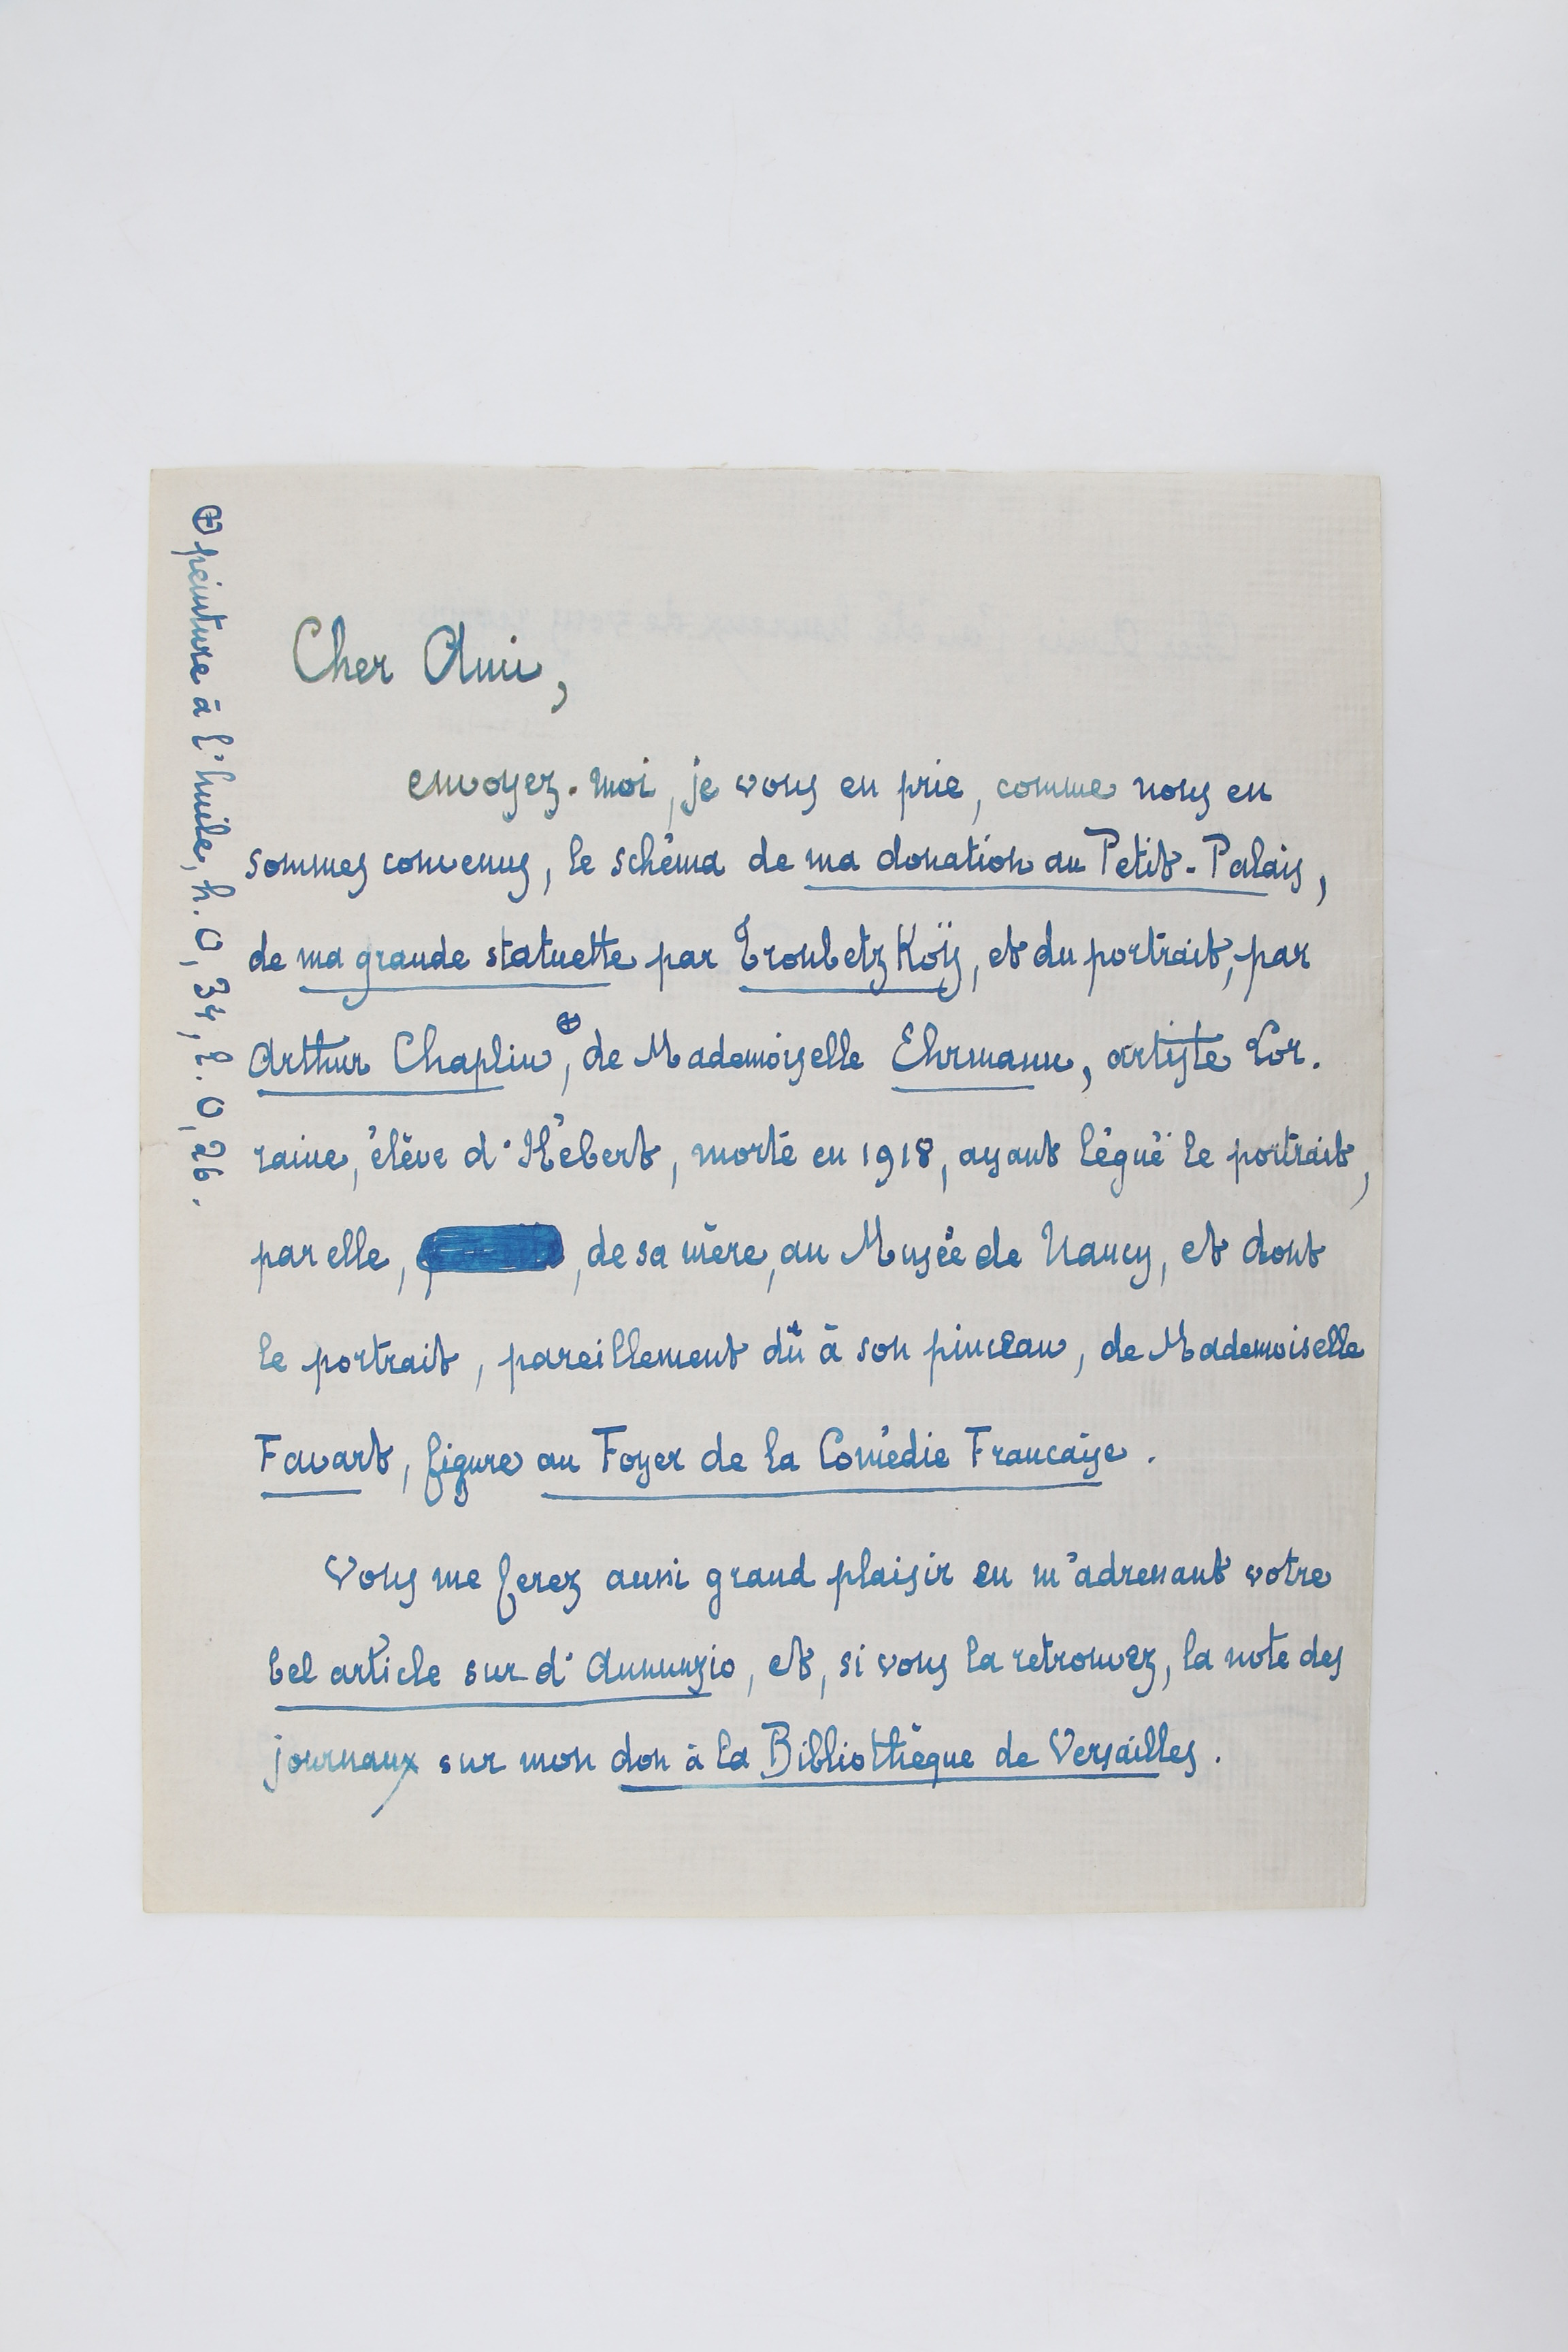 Cher Ami,
envoyez-moi, je vous en prie, comme nous en
sommes convenus, le schéma de ma donation au Petit-Palais,
de ma grande statuette par TroubetzKoÿ, et du portrait, par
Arthur Chaplin ⊕, de Mademoiselle Ehrmann, artiste Lor-
raine, élève d'Hébert, morte en 1918, ayant légué le portrait,
par elle, , de sa mère, au Musée de Nancy, et dont
le portrait, pareillement dû à son pinceau, de Mademoiselle
Favart, figure au Foyer de la Comédie Francaise.
Vous me ferez aussi grand plaisir en m'adressant votre
bel article sur d'Annunzio, et, si vous la retrouvez, la note des
journaux sur mon don à la Bibliothèque de Versailles.
⊕ peinture à l'huile, h. 0,34, l. 0,26.